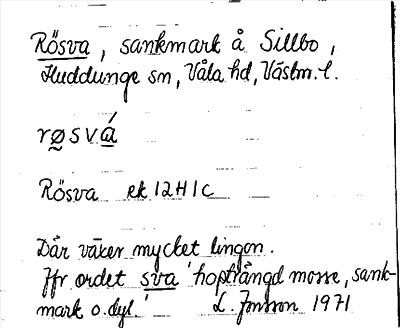 Rösva, sankmark å Sillbo,
Huddunge sn, Våla hd, Västm. l.
rø̰svá̱
Rösva ek 12H1c
Där växer mycket lingon.
Jfr ordet sva 'hopträngd mosse, sank-
mark o. dyl.' L. Jonsson 1971